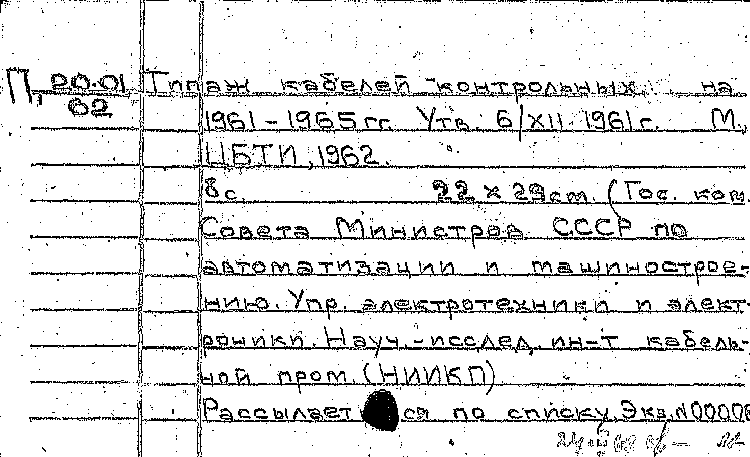 П, 20.01 Типаж кабелей контрольных на
62
1961-1965 гг. Утв. 6/XII 1961 г. М.,
ЦБТИ, 1962.
8 с. 22 x 29 cm. (Гос. ком.
Совета Министров СССР по
автоматизации и машинострое-
нию. Упр. электротехники и элект-
роники. Науч.-исслед. ин-т кабель-
ной пром. (НИИКП)
Рассылается по списку. Экз. N00006